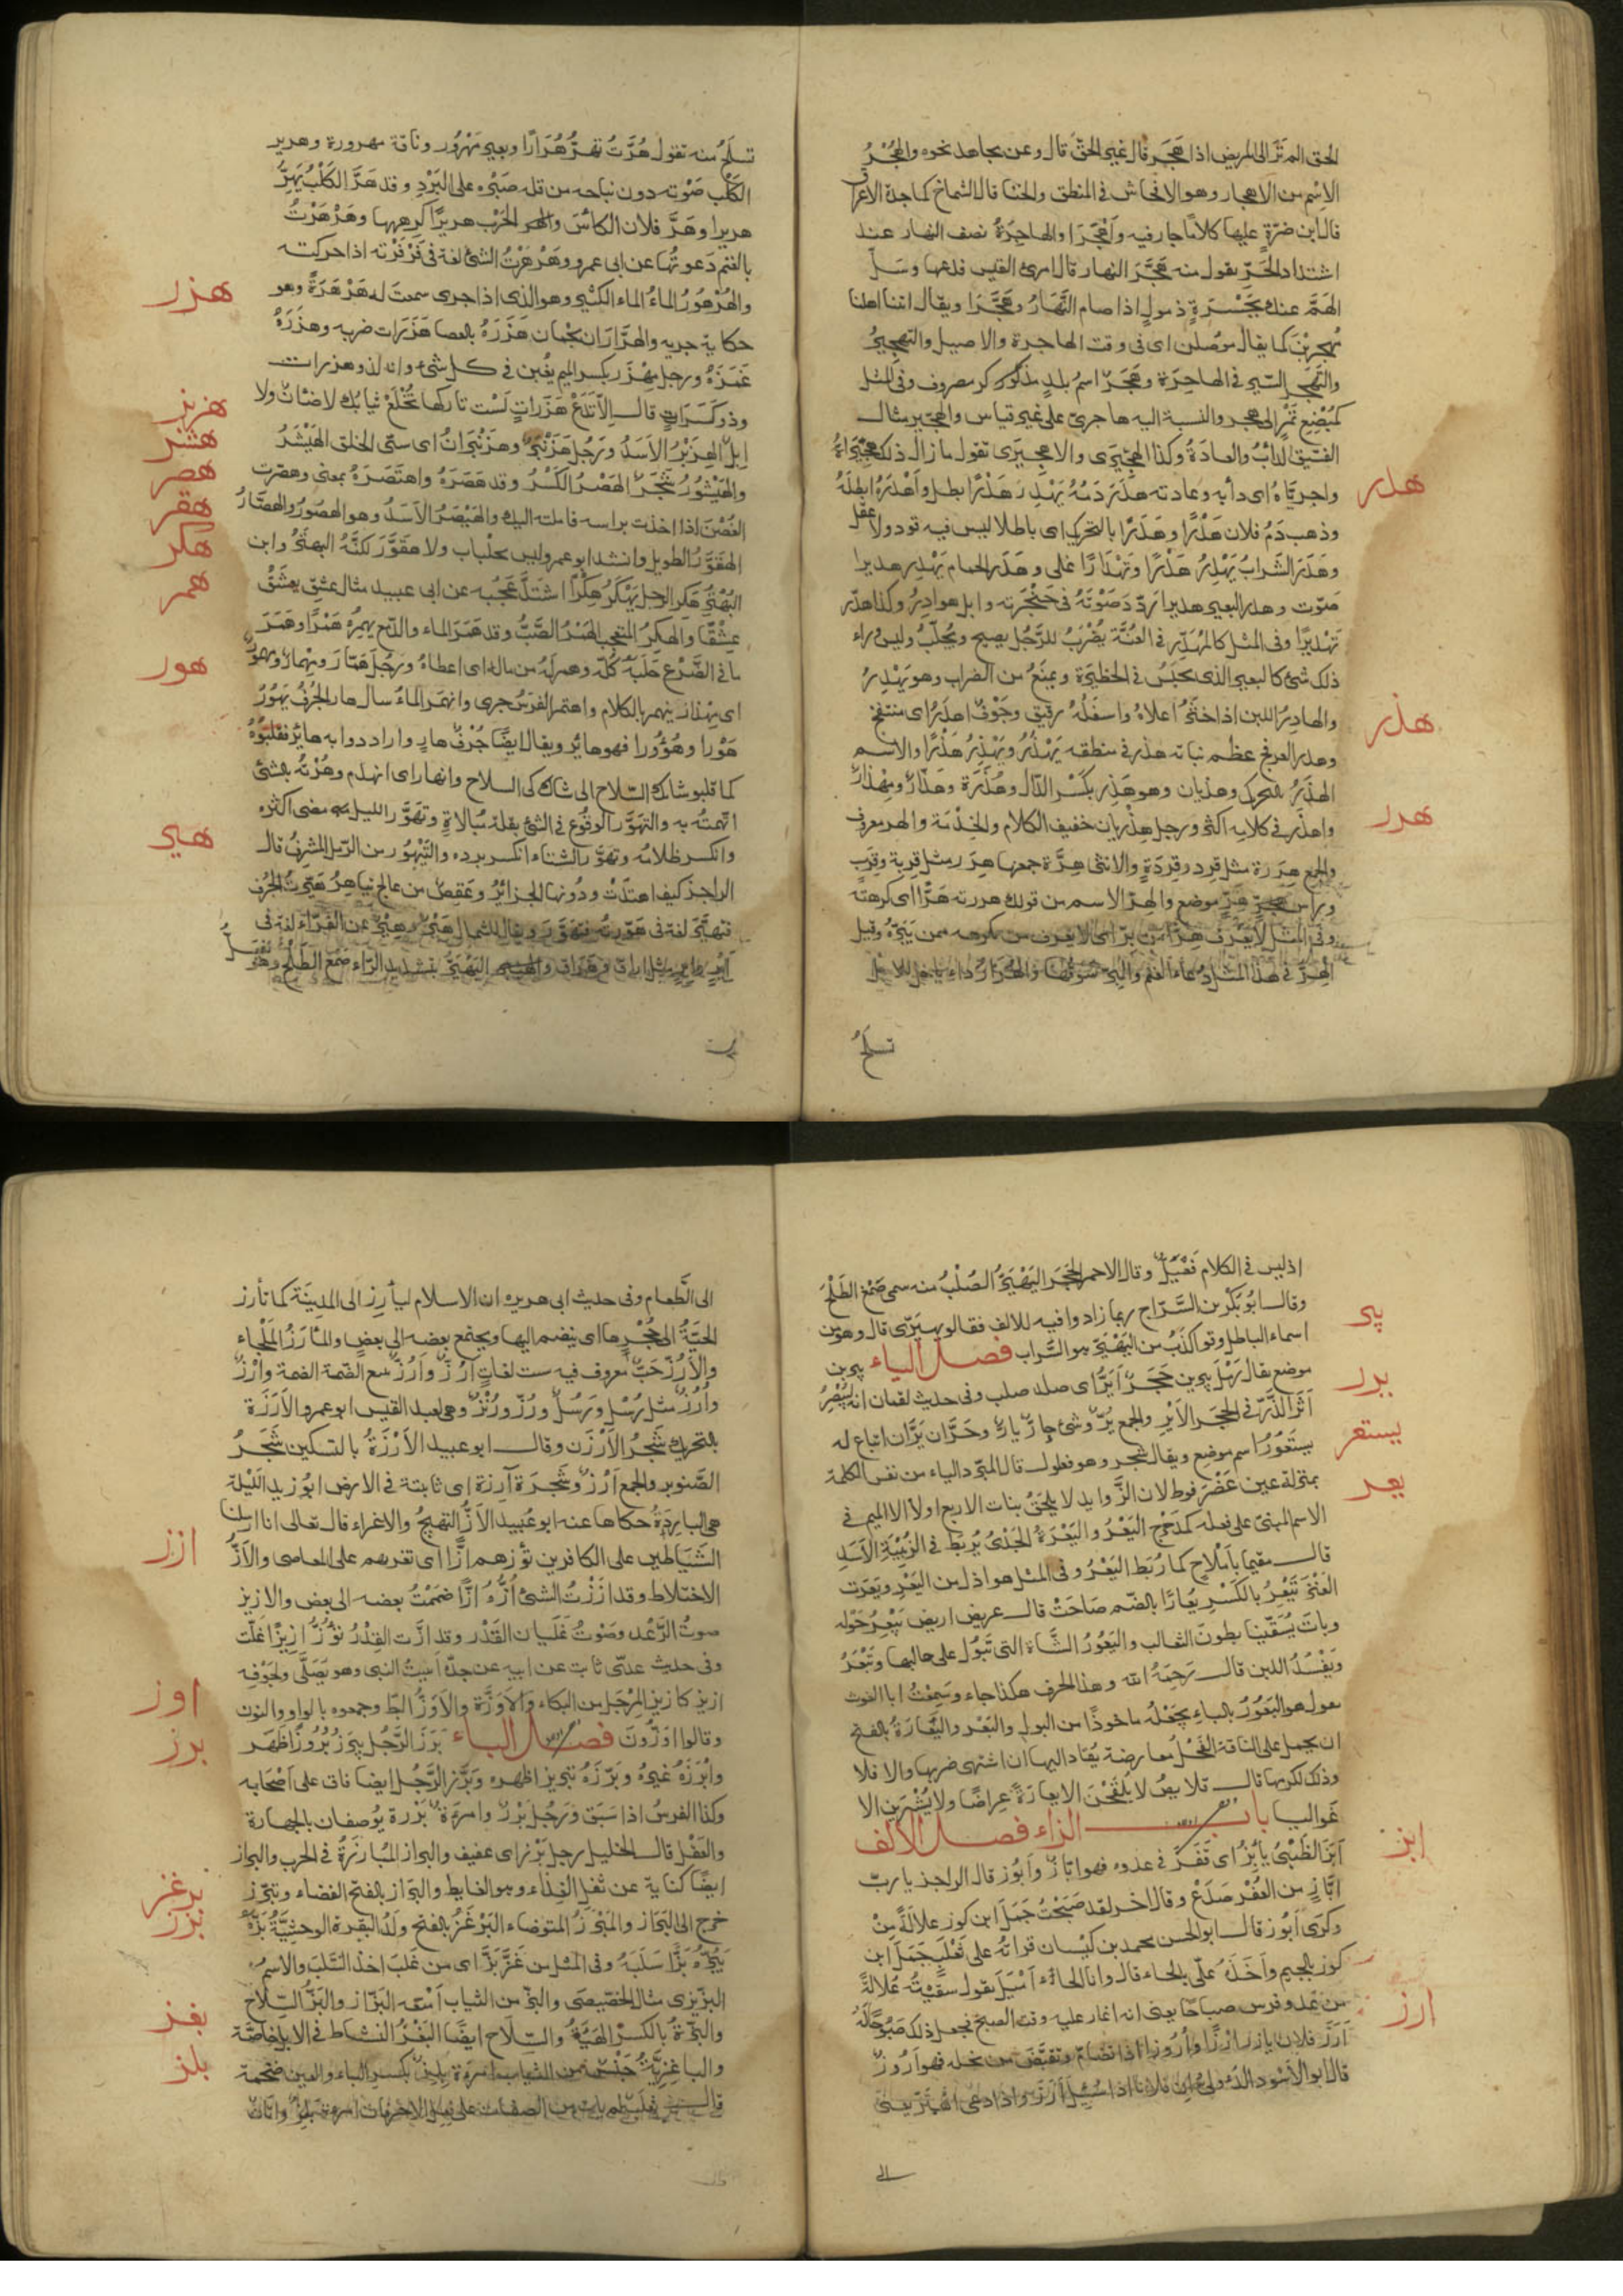 الحق الم تر الى المريض اذا هجر قال غير الحق قال وعن مجاهد نحوه والهُجْرُ
الاِسْم من الاهجار وهو الافحاش فى المنطق والخنا قال الشماخ كماجدة الاعراق
قال ابن ضرة عليها كلاما جار فيه وَاَهْجَرَا والهاجِرَةُ نصف النهار عند
اشتداد الحَرِّ يقول منه هَجَّرَ النهار قال امرئ القيس فدعها وسَلِّ
الهَمَّ عنك بِجَسْرَةٍ ذمولٍ اذا صام النَّهارُ وهَجَّرَا ويقال اتنا اهلنا
مُهجرِينَ كما يقال موصلين اى فى وقت الهاجرة والاصيل والتهجيرُ
والتَهَجّر السَّير فى الهاجِرَة وهَجَرٌ اسمُ بلدٍ مذكور مصروف وفى المثل
كمُبْضِعِ تَمْرٍ الى هجر والنسبة اليه هاجرىّ على غير قياس والهِجّير مثال
الفسّيق الدَأْبُ والعادَةُ وكذا الهِجِّيرَى والاهجِيرَى تقول ما زال ذلك هِجِّيرَاهُ
واجرِيَّاهُ اى دأبه وعادته هدَرَ دَمُهُ يَهْدِر هَدْرًا بطل واَهْدَرَهُ ابطلَهُ
هدر
وذهب دَمُ فلان هَدْرًا وهَدَرًا بالتحريك اى باطلا ليس فيه قود ولا عقل
وهَدَرَ الشَرابُ يَهْدِرُ هَدْرًا وتَهْدَارًا غلى وهَدَرَ الحمام يَهْدِر هديرا
صَوّت وهدر البعير هديرا ردّدَ صَوْتَهُ فى حَنْجَرته وابل هوادِرُ وكذا هدّر
تَهْديرًا وفى المثل كالمُهَدِّر فى العُنَّة يُضْرَبُ للرَّجُل يصيح ويُجلّبُ وليس وراء
ذلك شئ كالبعير الذى يحبَسُ فى الحظيرَة ويمنَعُ من الضراب وهو يَهْدِرُ
والهادِرُ اللبن اذا خثُرَ اعلاهُ واسفَلُهُ رقيق وجَوْفٌ اهدَرُ اى منتفخ
هذر
وهدر العرفج عظم نباته هذر فى منطقه يَهْذُرُ ويَهْذِرُ هَذْرًا والاسم
الهذَرُ بالتحريك وهذيان وهو هَذِر بكَسْر الذال وهُذَرَة وهَذّارٌ ومِهْذارٌ
واهذر فى كلامِه اكثر ورجل هِذْرِيان خفيف الكلام والخِدْمَة والهر معروف
هرر
والجمع هِرَرة مثل قِرد وقِرَدَةٍ والانثى هِرّة جمعها هِرَر مثل قِربة وقِرَبٍ
وراس هِرٍّ موضع والهرّ الاسم من قولك هررته هَرًّا اى كرهته
وفى المثل لا يَعْرِف هِرًّا من بِرّ اى لا يعرف من يكرهه ممن يَبَرُّهُ وقيل
الهِرُّ فى هذا المثل دُعاء الغنم والبِرُّ سَوْقُها والهُرَارُ داء ياخذ الابل
تسلَحُ
تسلَحُ منه تقول هُرَّتْ تهَرُّ هُرَارًا وبعير مَهْرُور وناقة مهرورة وهرير
الكَلْب صَوْته دون نباحه من قله صَبْره على البَرْدِ وقد هَرَّ الكَلْبُ يَهِرُّ
هريرا وهَرَّ فلان الكَأسَ والحَرْب هريرًا كرهها وهَرْهَرْتُ
بالغنم دَعوتُها عن ابى عمرو وهَرْهَرْتُ الشئ لغة فى فَرْفَرْته اذا حركته
والهُرْهُورُ الماءُ الماء الكثير وهو الذى اذا جرى سمعتَ له هَرْهَرَةً وهو
هزر
حكاية جريه والهرَّارَان نجمان هَزَرَهُ بالعصا هَزَرَات ضربه وهزَرَهُ
غَمَزَهُ ورجل مِهْزَر بكسر الميم يغُبن فى كل شئ وانه لذو هزرات
وذو كَسَراتٍ قال الاّ تَدَعْ هَزَراتٍ لَسْت تاركها تُخْلَعْ ثيابُك لا ضَانٌ ولا
هزبر
ابلٌ الهِزَبْرُ الاَسَدُ ورَجُل هَزَنْبَرٌ وهزَنْبَرَانٌ اى سئ الخلق الهَيْشَرُ
هشر
والهَيْشُورُ شَجَرٌ الهَصْرُ الكَسْرُ وقد هَصَرَهُ واهتَصَرَهُ بمعنى وهصَرت
هصر
الغُصْنَ اذا اخذت براسه فاملته اليك والهَيْصَرُ الاَسَدُ وهو الهصَوْرُ والهصَّارُ
هقر
الهَقَوَّرُ الطويل وانشد ابو عمرو ليس بجلْباب ولا هقَوَّر لكنَّهُ البهتُرُ وابن
هكر
البُهْتُرِ هَكِرَ الرجل يَهْكَرُ هَكَرًا اشتَدَّ عَجَبُه عن ابى عبيد مثال عَشِقَ يعشَقُ
عِشْقًا والهَكِرُ المتعجب الهَمْرُ الصَّبُّ وقد هَمَرَ الماء والدّمع يهمِرُهُ هَمْرًا وهَمَرَ
همر
ما فى الضَّرْع حَلَبَهُ كُلَّه وهمر لهُ من مالهِ اى اعطاهُ ورَجُل هَمّار ومِهْمارٌ ومِهْمَرٌ
هور
اى مِهْذار ينهمر بالكلام واهتمر الفرَسُ جرى وانهمَر الماءُ سال هار الجُرْفُ يَهُورُ
هَوْرا وهُؤُورا فهو هائر ويقال ايضًا جُرُفٌ هارٍ وارادوا به هائر فقلبُوهُ
كما قلبو شائك السّلاح الى شاك السلاح وانهار اى انهدم وهُرْتُه بالشئ
اتهمتُه به والتهوّر الوقُوع فى الشئ بقلة مُبالاةٍ وتهَوَّر الليل مضى اكثره
وانكسر ظلامُه وتهوَّر الشتاء انكسر برده والتَّيْهُور من الرّمل المشرفُ قال
هير
الراجز كيف اهتدَتْ ودُونها الجزائرُ وعَقِصٌ من عالج تياهِرُ هَيَّرتُ الجُرُف
فتهيَّرَ لغة فى هَوّرته فتهَوَّرَ ويقال للشمال هَيْرٌ وهِيْرٌ عن الفَرَّاء لغة فى
اذليس فى الكلام فَعْيَلٌّ وقال الاحمر الحجَر اليَهْيَرُّ الصُلْبُ منه سمى صَمْغ الطَلْحَ
وقال ابُو بَكْر بن السَّرَّاج ربما زادوا فيه للالف فقالو يهيَرَّى قال وهو من
اسماء الباطل وقولهم اكذَبُ من اليَهْيَرِّ هو السَّراب فصل الياء يبرين
يبر
موضع يقال رَمْل يبرين حَجَرٌ اَيَرُّ اى صلد صلب وفى حديث لقمان انه ليُبْصِرُ
يرر
اَثَرَ الذَّرِّ فى الحَجَر الاَيَرِّ والجمع يُرٌّ وشئ حارٌّ يارٌّ وحَرَّان يَرَّان اتباع له
يستعر
يستَعُورُ اسم موضع ويقال شجر وهو فعلول قال المبرّد الياء من نفس الكلمة
بمنزلة عين عَضْرفوط لان الزَّوايد لا يلحَقُ بنات الاربع اولا الا الميم فى
يعر
الاسم المبنىّ على فعله كمدَحْرِج اليَعْرُ واليَعْرَةُ الجَدْىُ يُرْبَطُ فى الزُبْيَةِ للاَسَدِ
قال مقيما بأملاحٍ كما رُبَط اليَعْرُ وفى المثل هو اذل من اليَعْرِ ويَعَرَت
العَنْزُ تَيْعِرُ بالكَسْرِ يُعارًا بالضَّم صَاحَتْ قال عريض اريض يَيْعِرُ حَوْله
وبات يُسَقّينا بطونَ الثعالب واليَعُورُ الشَّاة التى تَبُولُ على حالبها وتَبْعَرُ
ويَفْسُدُ اللبن قال رَحِمَهُ الله وهذا الحرف هكذا جاء وسَمِعْتُ ابا الغوث
يقول هو البَعُورُ بالباء يجعَلُه ماخوذًا من البول والبَعْر واليَعَارَةُ بالفتح
ان يحمل على الناقة الفَحْلُ معارضة يُقاد اليها ان اشتهى ضربها والا فلا
وذلك لكرمها قال قلايص لا يُلْقَحْنَ الا يعارَةً عِراضًا ولا يُشْرَين الا
غواليا باب الزاء فصل الالف
ابز
اَبَزَ الظَبْىُ يَأبِزُ اى قَفَزَ فى عدوه فهو اَبّازٌ وَاَبُوز قال الراجز يا ربّ
ابّازٍ من العُفْر صَدَعْ وقال اخر لقد صَبَحْتُ حَمَلَ ابن كوز علالَةً مِنْ
وكَرَى اَبُوز قال ابو الحسن محمد بن كَيْسان قراتُهُ على ثعْلَبٍ جَمَلَ ابن
كوز بالجيم واَخَذَهُ علىّ بالحاء قال وانا الحاء اَمْيَلُ يقول سقيْتُه عُلالةً
من عدو فرس صباحًا يعنى انه اغار عليه وقت الصبح فجعل ذلك صَبُوحًا لَهُ
ارز
اَرَزَ فلان يارز ارْزًا واُرُوزا اذا تضامّ وتقبّض من بخله فهو اَرُوزٌ
قال ابو الاسْود الدُؤلىّ ان فلانا اذا سُئِلَ اَرَزَ واذا دعى اهتَزَّ يعنى
الى
الى الطَّعام وفى حديث ابى هريره ان الاسلام ليأرِز الى المدِينَة كما تأرز
الحيّةُ الى جُحْرِها اى ينضم اليها ويجتمع بعضه الى بعضٍ والمَأرَزُ المَلْجاء
والاَرُزّ حَبّ معروف فيه ست لغاتٍ اَرُزّ وَاُرُزّ تتبع الضّمة الضمة واُرْزٌ
واُرُزٌ مثل رُسْلٍ ورُسُلٍ ورُزّ ورُنْزٌ وهى لعبد القيس ابو عمرو الاَرَزَة
بالتحريك شَجَرُ الاَرْزَن وقال ابو عبيد الاَرْزَةُ بالتسكين شَجَرُ
الصَّنوبر والجمع اَرْزٌ وشَجَرة آرِزة اى ثابتة فى الارض ابُو زيد اللَيلَة
هى البارِدَةُ حكاها عنه ابو عُبَيد الاَزُّ التهيجُ والاغراء قال تعالى انا ارسلنا
ازز
الشَّيَاطين على الكافرين تؤزهم اَزًّا اى تغريهم على المعاصى والاَزُّ
الاختلاط وقد ازَزْتُ الشئ اَؤُزُّهُ ازًّا ضَمَمْتُ بعضه الى بعض والازيز
صوتُ الرَّعْد وصَوْتُ غَلَيَان القِدْر وقد ازّت القِدْرُ تؤُزُّ ازِيزًا غَلَت
وفى حديث عدىّ ثابت عن ابيه عن جدّه اتيتُ النبى وهو يَصَلّى ولجوْفِه
ازيز كازيز المِرْجَل من البكاء والاوَزَّة والاَوَزُّ البَطّ وجمعوه بالواو والنون
اوز
وقالوا اوَزُّونَ فصل الباء بَرَزَ الرَّجُل يبرُز بُرُوزًا ظَهَر
برز
واَبْرَزَهُ غيرُهُ وبَرَّزَهُ تبريز اظهره وبَرَّز الرَّجُل ايضا فاق على اَصْحَابه
وكذا الفرسُ اذا سَبَق ورَجُل بَرْزٌ وامرَءةٌ بَرْزة يُوصفان بالجهارة
والعَقْل قال الخليل رجل بَرْز اى عفيف والبراز المُبارَزَةُ فى الحرب والبراز
ايضًا كناية عن ثفل الغِذاء وهو الغايط والبَراز بالفتح الفضاء وتبرّز
برغز
خرج الى البَرَاز والمَبْرَزُ المتوضاء البَرْغَزُ بالفتح ولَدُ البقرة الوحشيّةُ بَزَّهُ
بزز
يَبُزُّه بَزًّا سَلَبَهُ وفى المثل من عَزَّ بَزَّ اى من غَلبَ اخذ السَّلَبَ والاسمُ
البزيزى مثال الخصّيصَى والبزّ من الثياب اَمْتعَه البَزَّاز والبَزُّ السّلاح
والبِزَّةُ بالكَسْرِ الهَيْئَةُ والسّلاح ايضًا البَغْزُ النشاط فى الابل خاصَّة
بغز
والباغِزِيَّةُ جِنْس من الثياب امرءة بِلِز بكسر الباء والعين ضخمة
بلز